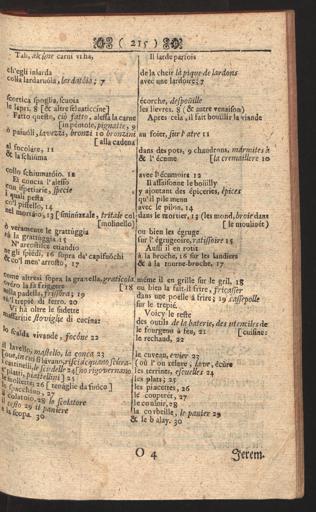 ( 215 )
Tali, alcune carni vi ha,
ch'egli inlarda
colla lardaruola, lardatoia; 7
scortica spoglia, scuoia
le lepri. 8 [& altre selvaticcine]
Fatto questo, ciò fatto, alessa la carne
[in pentole, pignatte, 9
ò paiuoli, lavezzi, bronzi 10 bronzini
[alla cadena
al focolare, 11
& la schiuma
collo schiumatoio. 12
Et concia l'alesso
con ispetierie, specie
i quali pesta
co'l pistello, 14
nel mortaio, 13
[molinello]
ò veramente le grattuggia
sù la grattuggia. 15
N'arrostisce quando
ne gli spiedi, 16 sopra de' capifuochi
& co'l men'arrosto, 17
come altresi sopra la gratella, graticola
[18
nella padella, 19
su'l trepiè di ferro. 20
Vi hà oltre le sudette
massaritie stoviglie di cucina:
lo scalda vivande, focone 22
il lavello, mastello, la conca 23
i catinelli, le scodelle 24 [
i piatti, piattellini 25
le mollette, 26 [tenaglie da fuoco]
27
il colatoio, 28 lo scolatore
il cesto 29 il paniere
& la scopa. 30
Il larde par fois
de la chair la pique de lardons
avec une lardoire; 7
écorche, despouïlle
les lievres, 8 (& autre venaison)
Apres cela, il fait bouïllir la viande
au foier, sur l'atre 11
dans des pots, 9 chaudrons, marmites 10
& l'écume [la cremaillere 10
avec l'écumoire 12
Il assaisonne le bouïlly
y ajoutant des épiceries, épices
qu'il pile menu
avec le pilon, 14
dans le mortier, 13 (les mond, broie dans
[le moulinet)
ou bien les égruge
sur l'égrugeoire, ratissoire 15
Aussi il en rotit
à la broche, 16 sur les landiers
& à la tourne-broche, 17
même il en grille sur le gril, 18
ou bien la fait-il frire, fricasser
dans une poelle à frire; 19 casserolle
sur le trepié.
Voicy le reste
des outils de la baterie, des utenciles de
[cuisine:
le fourgene à feu, 21
le rechaud, 22
le cuveau, evier 23
où l'on relave, lave, écure
les terrines, escuelles 24
les plats; 25
les pincettes, 26
le couperet, 27
le couloir, 28
la corbeille, le panier 29
& le balay. 30
O 4
Jerem.